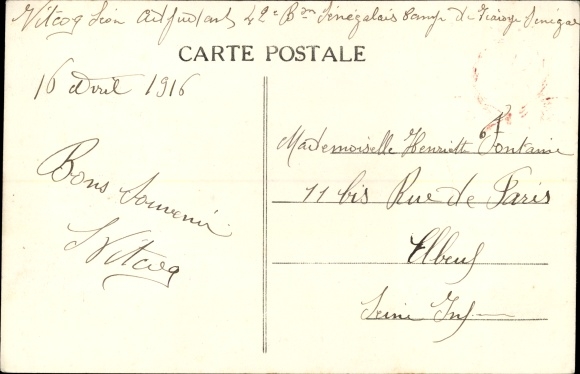 Vitcoq Léon Adjudant 42e Bon Sénégalais Camp de Tiaroye Sénégal
CARTE POSTALE
16 Avril 1916
Bons Souvenir
Vitcoq
Mademoiselle Henriette Fontaine
11 bis Rue de Paris
Elbeuf
Seine Inf